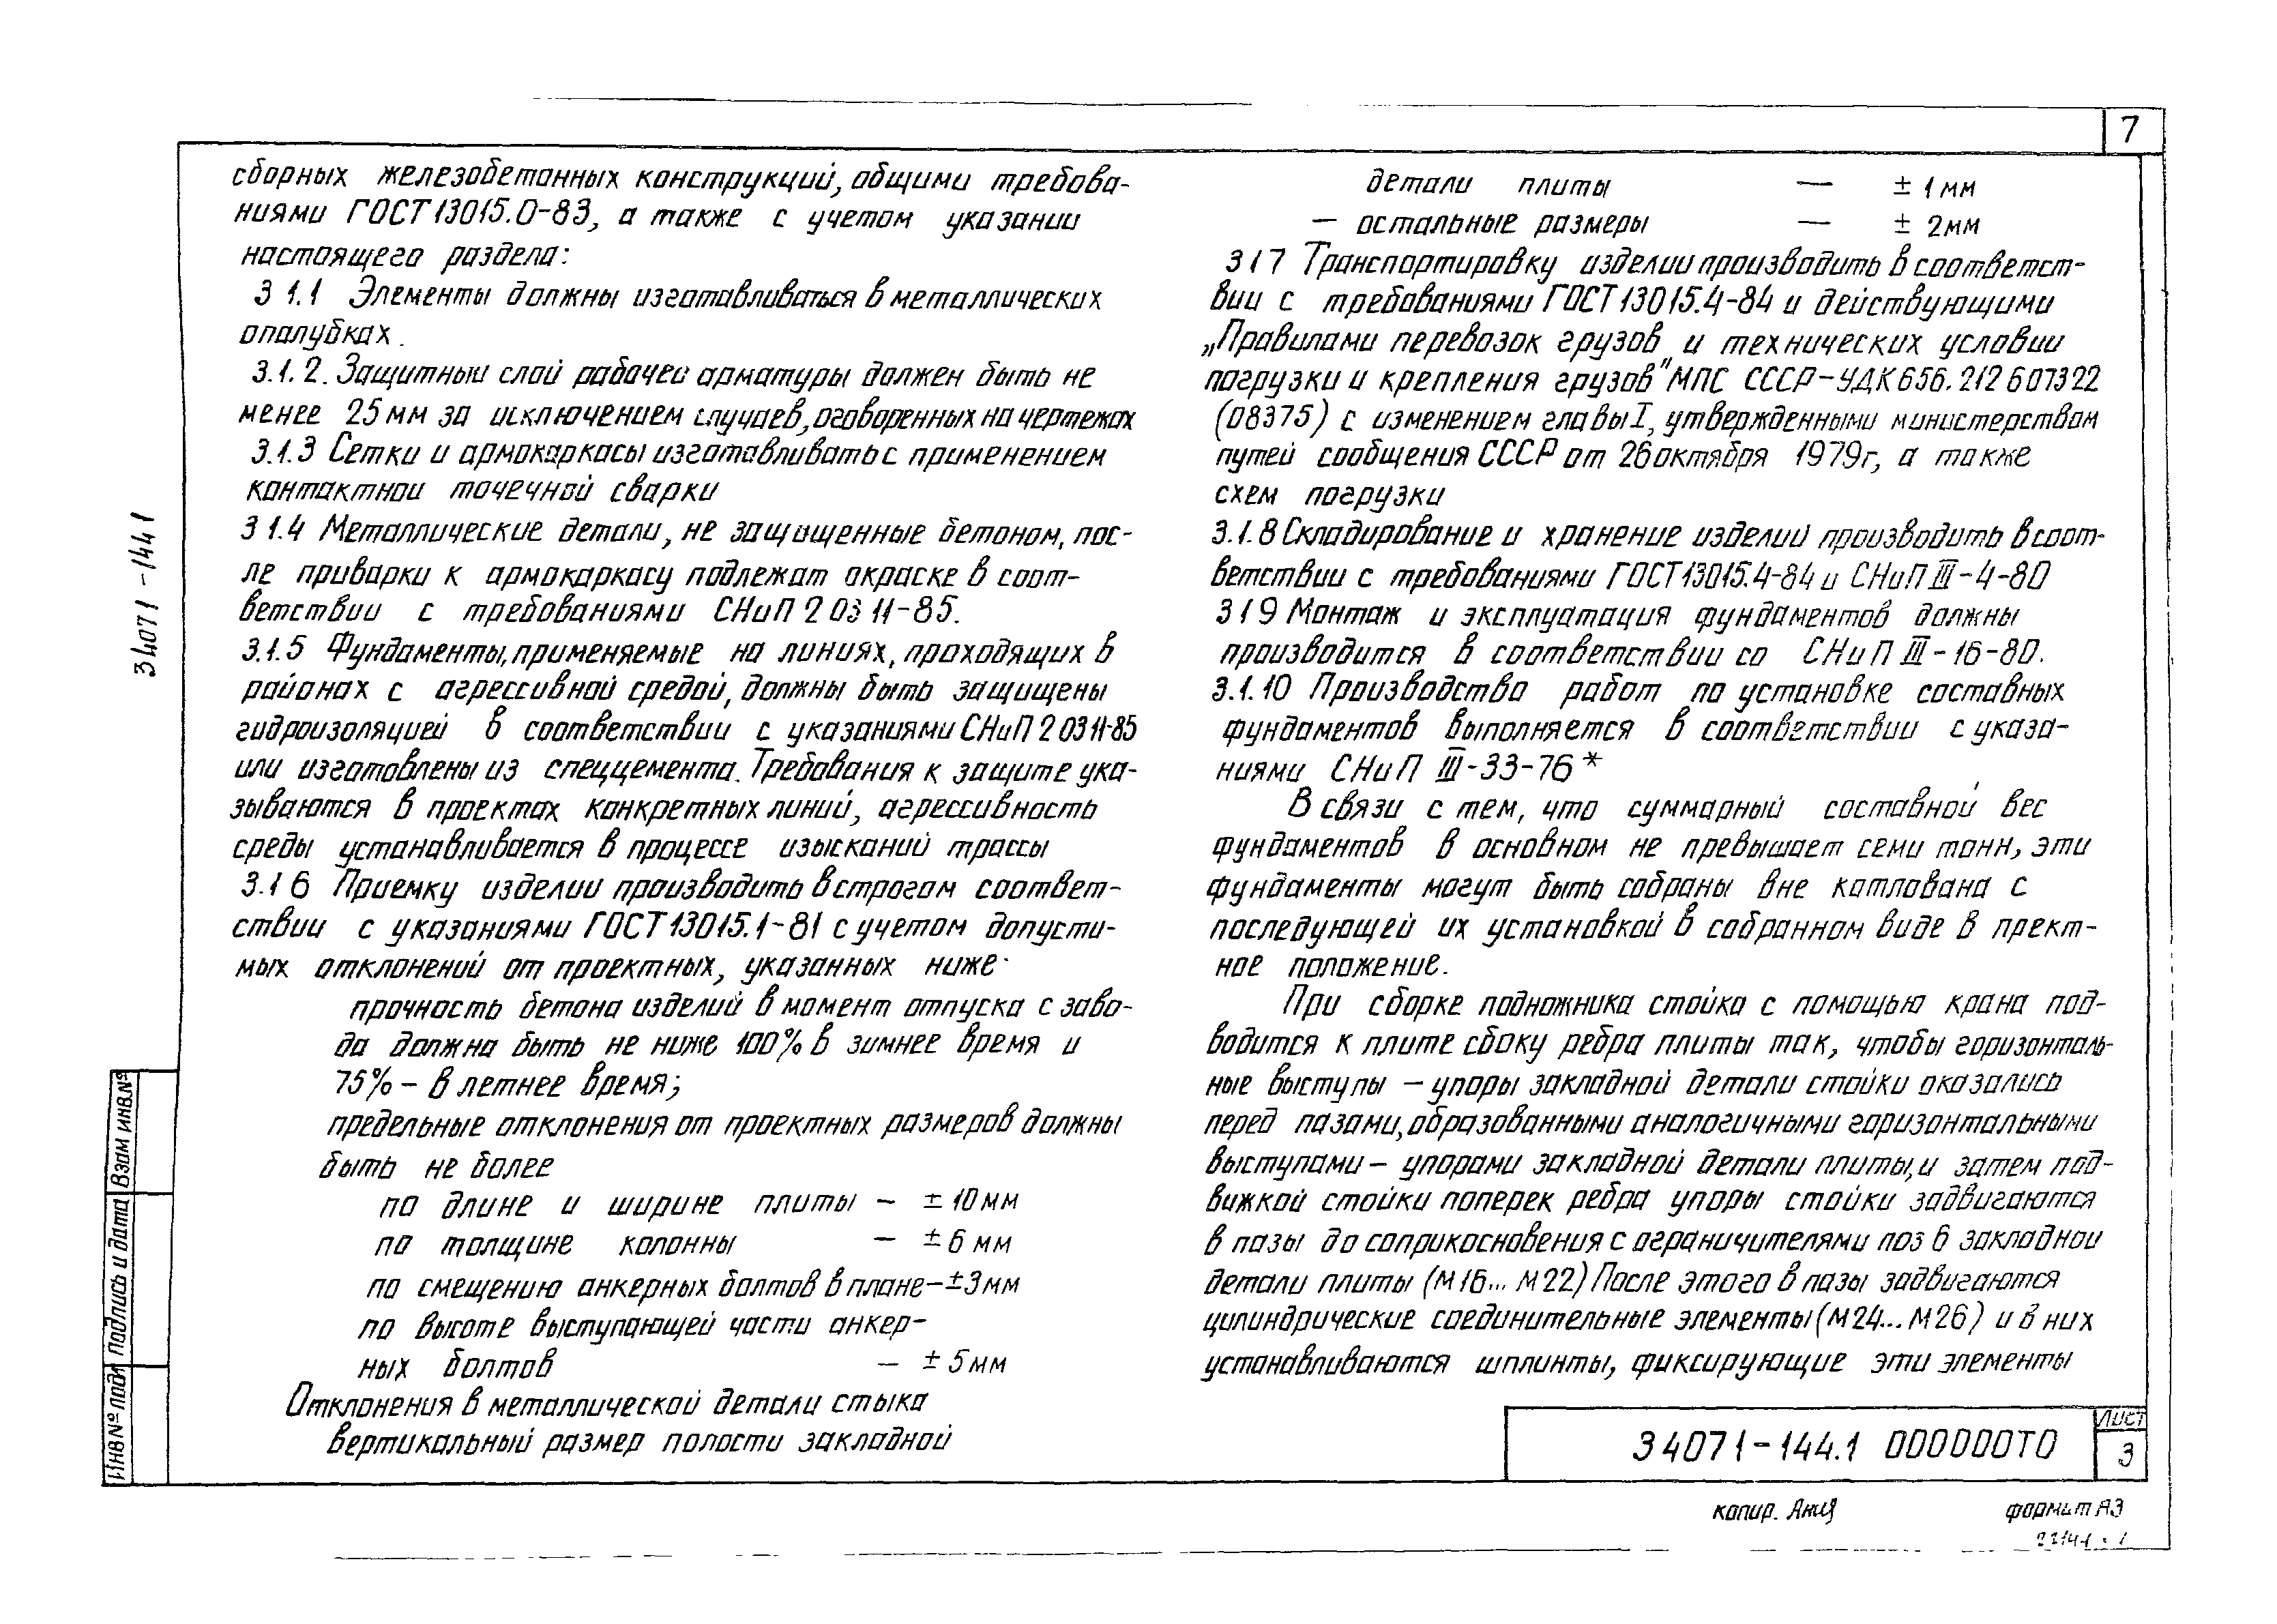 7
сборных железобетонных конструкций, общими требова-
ниями ГОСТ 13015.0-83, а также с учетом указании
настоящего раздела:
3 1.1 Элементы должны изготавливаться в металлических
опалубках.
3.1.2. Защитныи слой рабочеи арматуры должен быть не
менее 25 мм за исключением случаев, оговоренных на чертежах
3.1.3 Сетки и армокаркасы изготавливать с применением
контактнои точечной сварки
3 1.4 Металлические детали, не защищенные бетоном, пос-
ле приварки к армокаркасу подлежат окраске в соот-
ветствии с требованиями СНиП 2 03 11-85.
3.1.5 Фундаменты, применяемые на линиях, проходящих в
районах с агрессивной средой, должны быть защищены
гидроизоляцией в соответствии с указаниями СНиП 2 03 11-85
или изготовлены из спеццемента. Требования к защите ука-
зываются в проектах конкретных линий, агрессивность
среды устанавливается в процессе изысканий трассы
3.1 6 Приемку изделии производить в строгом соответ-
ствии с указаниями ГОСТ 13015.1-81 с учетом допусти-
мых отклонений от проектных, указанных ниже·
прочность бетона изделий в момент отпуска с заво-
да должна быть не ниже 100% в зимнее время и
75% - в летнее время;
предельные отклонения от проектных размеров должны
быть не более
по длине и ширине плиты - ± 10 мм
по толщине колонны - ± 6 мм
по смещению анкерных болтов в плане - ±3 мм
по высоте выступающей части анкер-
ных болтов - ± 5 мм
Отклонения в металлической детали стыка
вертикальный размер полости закладной
детали плиты — ± 1 мм
— остальные размеры — ± 2 мм
3 1 7 Транспортировку изделии производить в соответст-
вии с требованиями ГОСТ 13015.4-84 и действующими
„Правилами перевозок грузов и технических условии
погрузки и крепления грузов" МПС СССР-УДК 656. 212 6 073 22
(08375) с изменением главы I, утвержденными министерством
путей сообщения СССР от 26 октября 1979г, а также
схем погрузки
3.1.8 Складирование и хранение изделий производить в соот-
ветствии с требованиями ГОСТ 13015.4-84 и СНиП III-4-80
3 1 9 Монтаж и эксплуатация фундаментов должны
производится в соответствии со СНиП III-16-80.
3.1.10 Производство работ по установке составных
фундаментов выполняется в соответствии с указа-
ниями СНиП III-33-76*
В связи с тем, что суммарный составной вес
фундаментов в основном не превышает семи тонн, эти
фундаменты могут быть собраны вне котлована с
последующей их установкой в собранном виде в прект-
ное положение.
При сборке подножника стойка с помощью крана под-
водится к плите сбоку ребра плиты так, чтобы горизонталь-
ные выступы - упоры закладной детали стойки оказались
перед пазами, образованными аналогичными горизонтальными
выступами - упорами закладной детали плиты, и затем под-
вижкой стойки поперек ребра упоры стойки задвигаются
в пазы до соприкосновения с ограничителями поз 6 закладнои
детали плиты (М16... М22) После этого в пазы задвигаются
цилиндрические соединительные элементы (М24... М26) и в них
устанавливаются шплинты, фиксирующие эти элементы
3 4071-144 1
Взам инв.№
Подпись и дата
Инв № подл
3 4071-144.1 000000ТО
Лист
3
копир.
формат А3